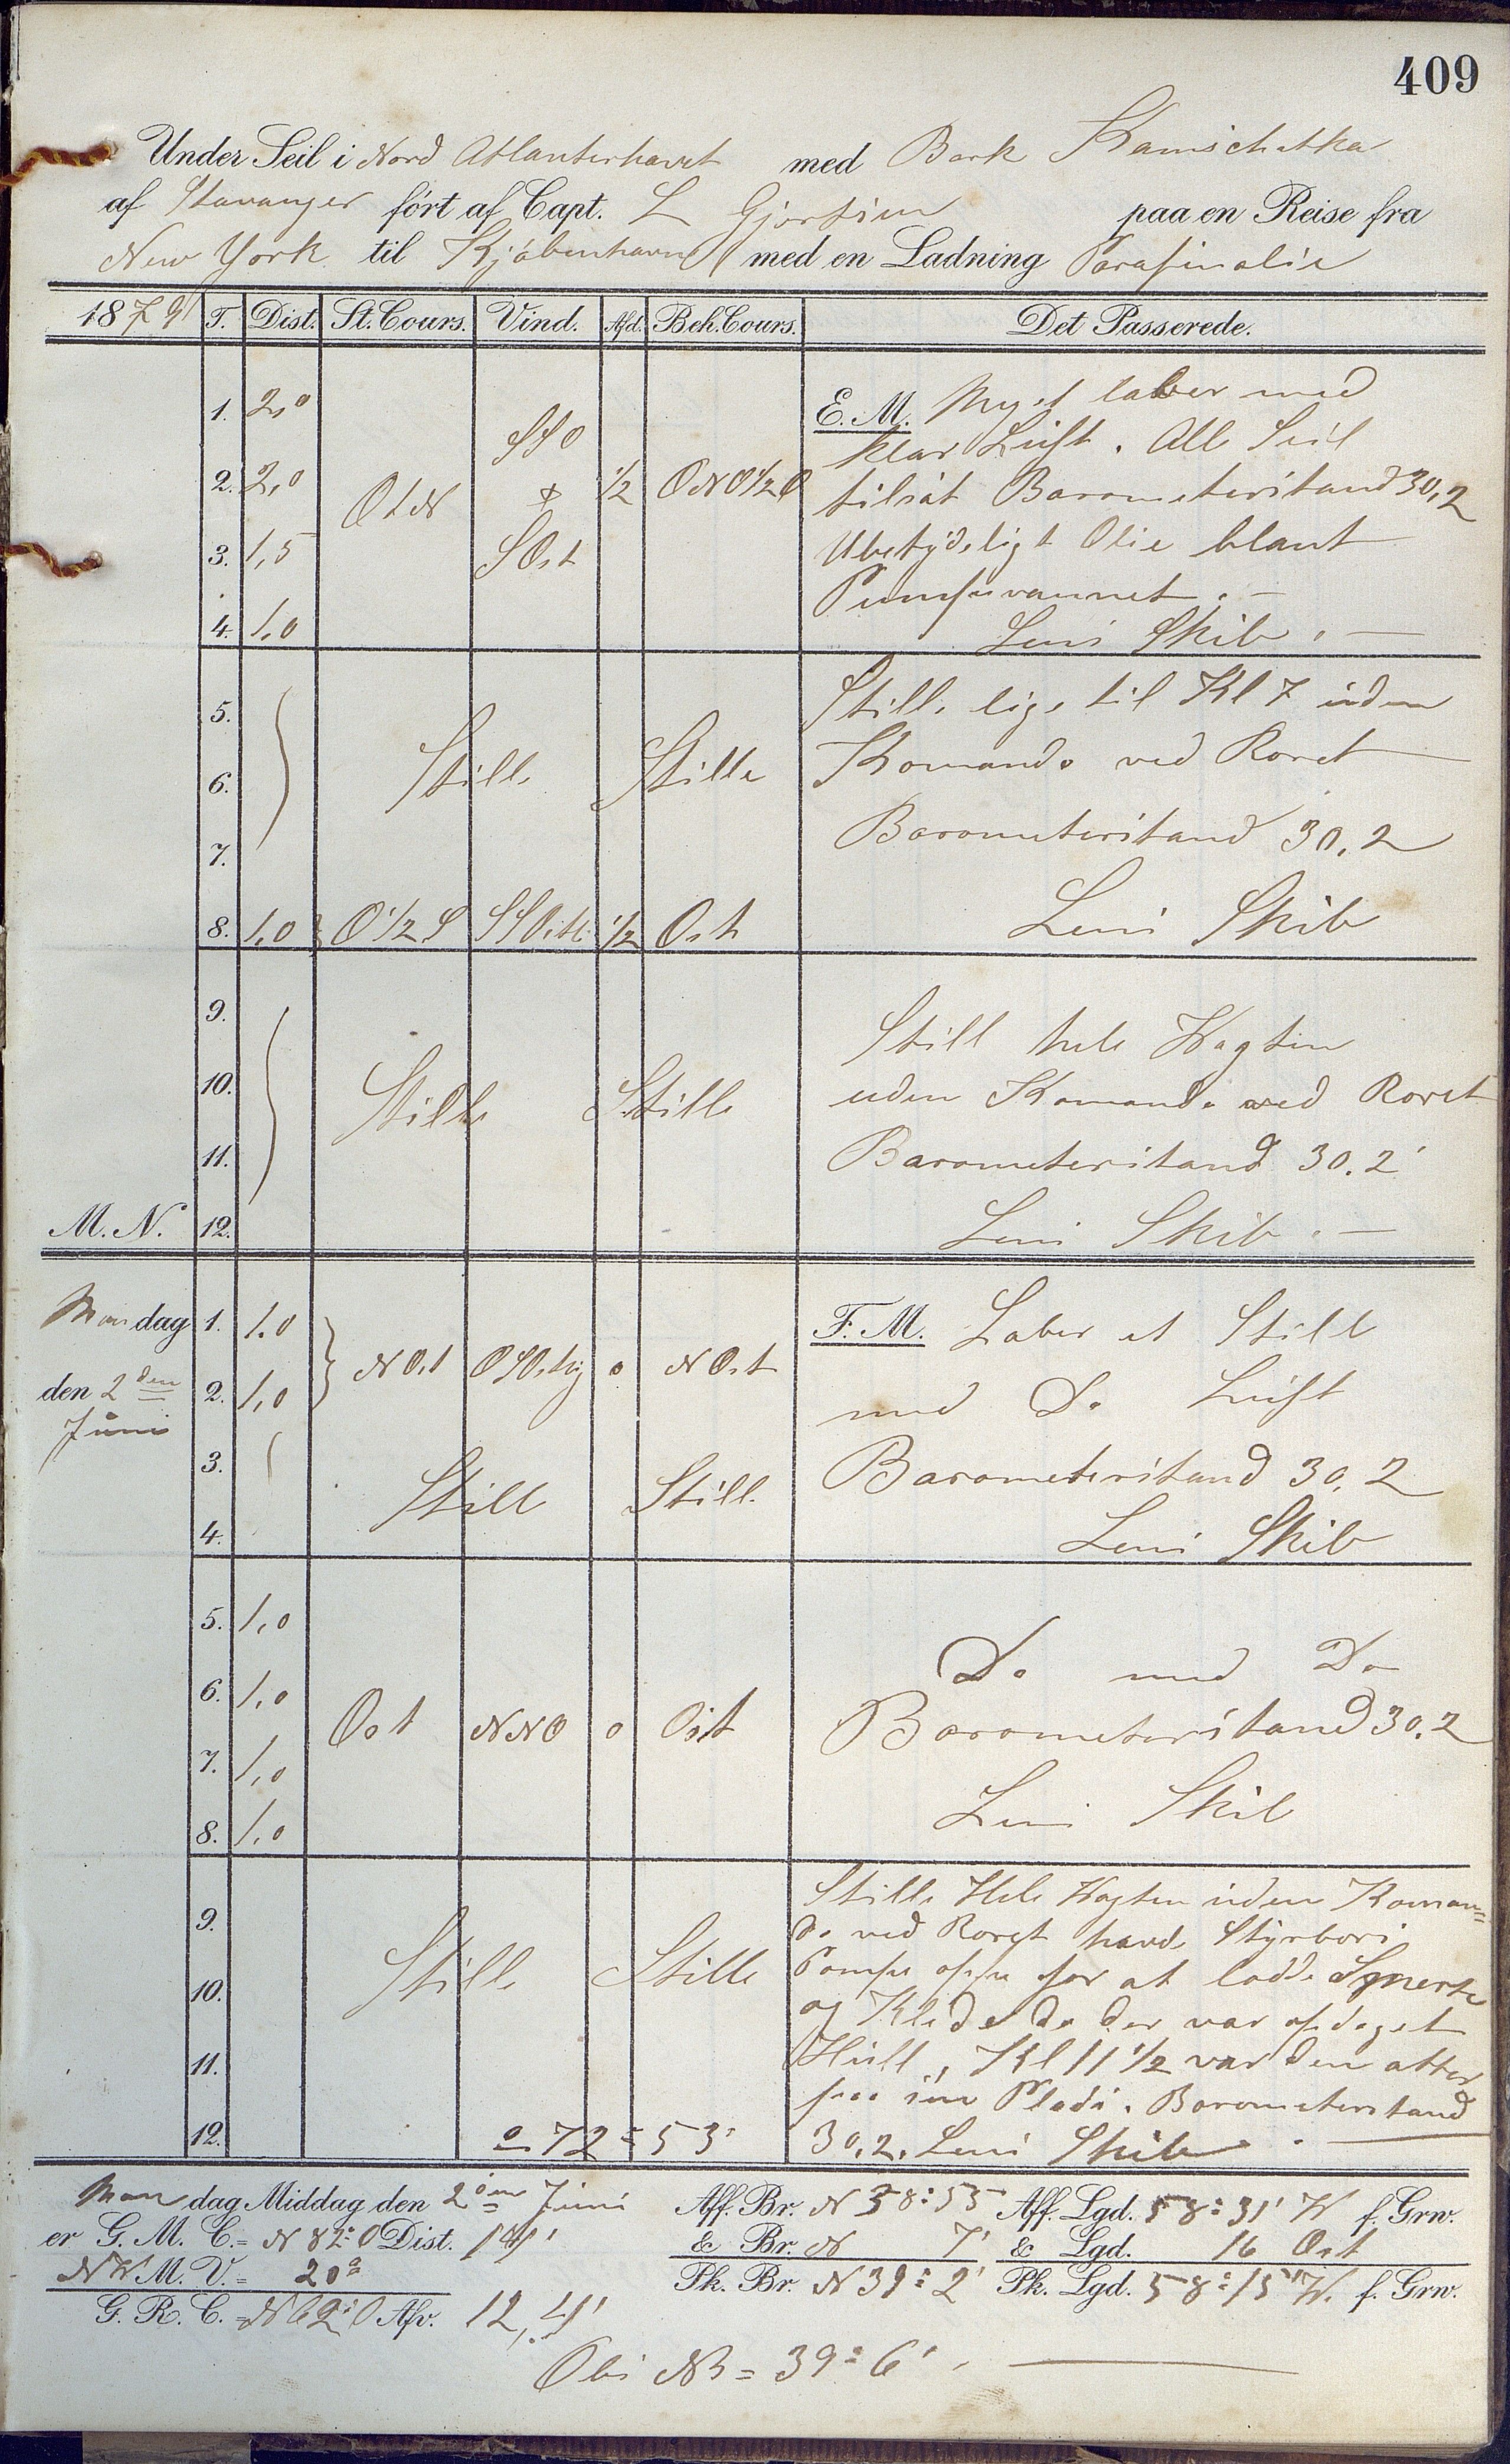 409
Under Seil i Nord Atlanterhavet med Bark Kamschatka
af Stavanger fört af Capt. L Gjortsen paa en Reise fra
New York til Kjöbenhavn med en Ladning Parafinolie
1879 T. Dist. St. Cours. Vind. Afd. Beh. Cours. Det Passerede.
1. 2,0 SSO E. M. Myet laber med
klar Luft. All Seil
2. 2,0 OtN & 1/2 ONO1/2O tilsat Barometerstand 30,2
3. 1,5 SOst Ubetÿdeligt Olie blant
Pumpevannet. —
4. 1,0 Lens Skib. —
5. Stille lige til Kl 7 uden
6. Stille Stille Komando ved Roret
7. Barometerstand 30,2
8. 1,0 O1/2 S SSOstl. 1/2 Ost Lens Skib
9. Still hele Wagten
10. Stille Stille uden Komando ved Roret
11. Barometerstand 30.2
M. N. 12. Lens Skib. —
Mandag 1. 1.0 F. M. Laber et Still
NOst OSOstlig 0 NOst
den 2den 2. 1,0 med Do Luft
Juni
3. Still Still Barometerstand 30,2
4. Lens Skib
5. 1,0
6. 1,0 Do med Do
Ost NNO 0 Ost Barometerstand 30.2
7. 1,0
8. 1,0 Lens Skib
Stille Hele Wagten uden Koman=
9. do ved Roret havde Stÿrbors
10. Stille Stille Pompe oppe for at lodde Smerte
og Klede da der var opdaget
11. Hull, Kl 11 1/2 var den atter
paa sin Plads. Barometerstand
12. 0 72 = 53' 30.2. Lens Skib. —
Mandag Middag den 2den Juni Aff. Br. N 38° 55 Aff. Lgd. 58° 31' W f. Grw.
er G. M. C. = N 82° O Dist. 14' & Br. N 7' & Lgd. 16 Ost
NW M. V. = 20° Pk. Br. N 39° 2' Pk. Lgd. 58° 15' W. f. Grw.
G. R. C. = N 62° O Afv. 12,4'
Obs NB = 39° 6'. —